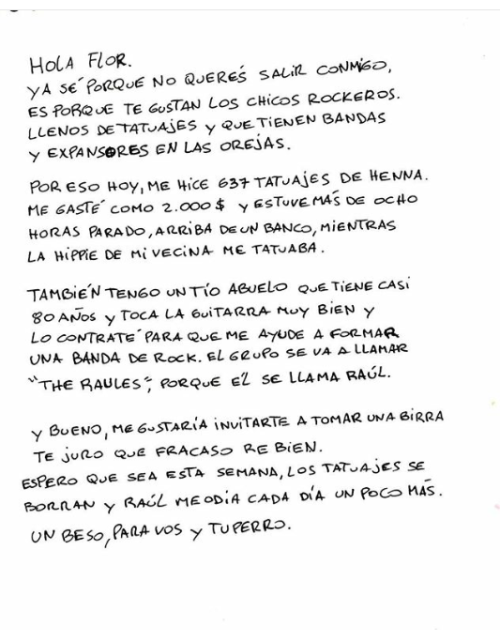 HOLA FLOR.
YA SÉ PORQUE NO QUERÉS SALIR CONMIGO,
ES PORQUE TE GUSTAN LOS CHICOS ROCKEROS.
LLENOS DE TATUAJES Y QUE TIENEN BANDAS
Y EXPANSORES EN LAS OREJAS.
POR ESO HOY, ME HICE 637 TATUAJES DE HENNA.
ME GASTÉ COMO 2.000 $ Y ESTUVE MÁS DE OCHO
HORAS PARADO, ARRIBA DE UN BANCO, MIENTRAS
LA HIPPIE DE MI VECINA ME TATUABA.
TAMBIÉN TENGO UN TÍO ABUELO QUE TIENE CASI
80 AÑOS Y TOCA LA GUITARRA MUY BIEN Y
LO CONTRATÉ PARA QUE ME AYUDE A FORMAR
UNA BANDA DE ROCK. EL GRUPO SE VA A LLAMAR
"THE RAULES", PORQUE ÉL SE LLAMA RAÚL.
Y BUENO, ME GUSTARÍA INVITARTE A TOMAR UNA BIRRA
TE JURO QUE FRACASO RE BIEN.
ESPERO QUE SEA ESTA SEMANA, LOS TATUAJES SE
BORRAN Y RAÚL ME ODIA CADA DÍA UN POCO MÁS.
UN BESO, PARA VOS Y TU PERRO.